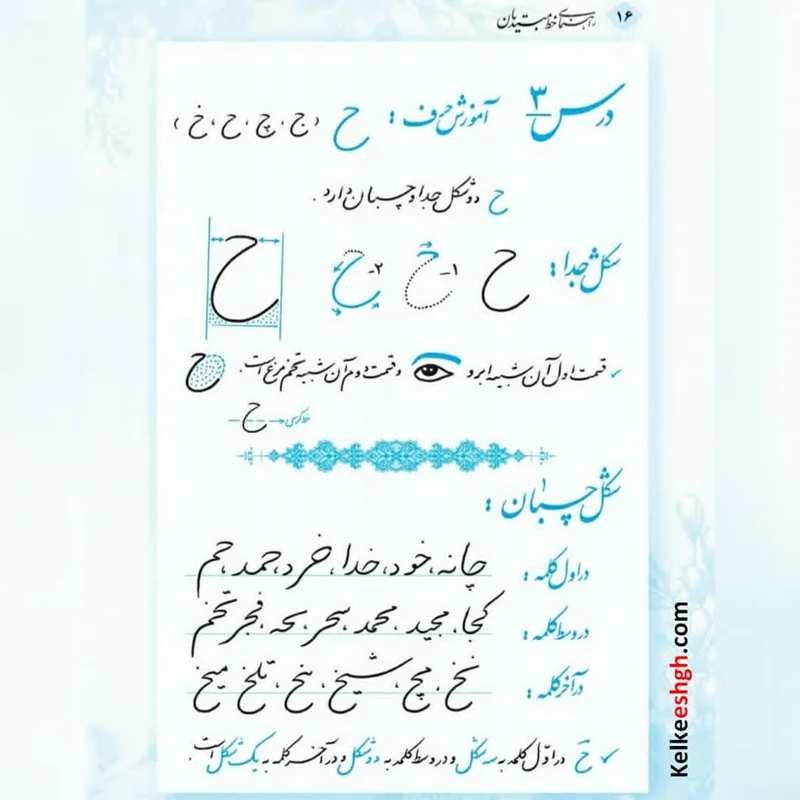 ۱۶ راهنمای خط مبتدیان
درس ۳ آموزش حرف : ح (ج، چ، ح، خ)
ح دو شکل جدا و چسبان دارد .
شکل جدا : ح ۱- ۲- ح
✓ قسمت اول آن شبیه ابرو و قسمت دوم آن شبیه تخم مرغ است.
خط کرسی ح
شکل چسبان :
در اول کلمه : چانه، خود، خدا، خرد، حمد، حم
در وسط کلمه : کجا، مجید، محمد، سحر، بحه، فجر، تخم
در آخر کلمه : نخ، مچ، شیخ، بنح، تلخ، میخ
✓ ح در اوّل کلمه به سه شکل و در وسط کلمه به دو شکل و در آخر کلمه به یک شکل است.
Kelkeeshgh.com